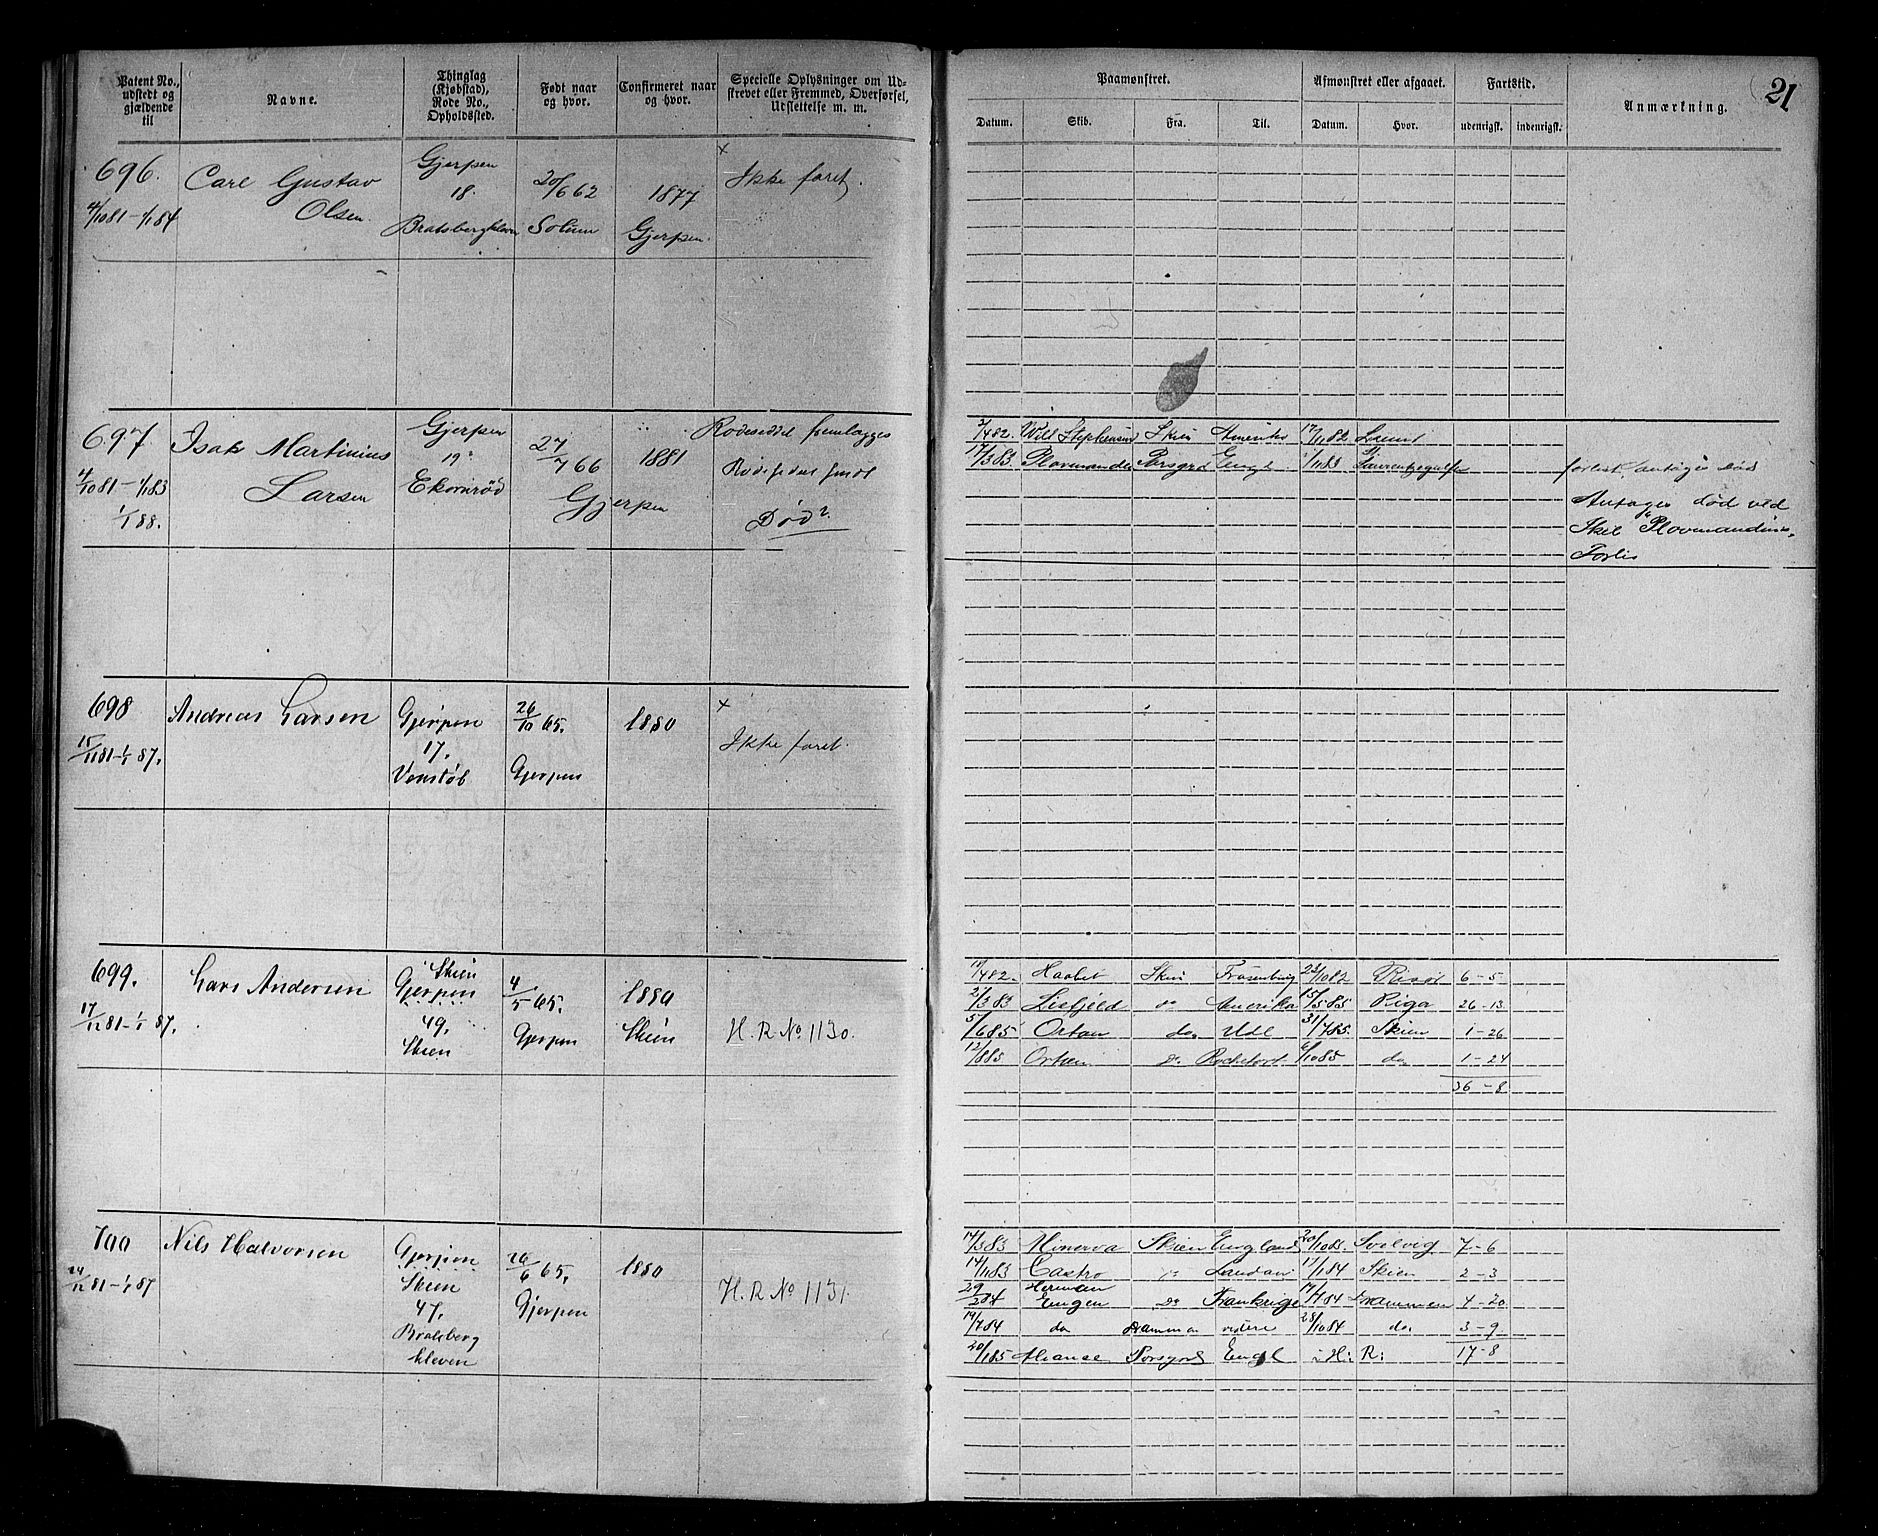 21
Patent No., udstedt og gjældende til
Navne.
Thinglag (Kjøbstad), Rode No., Opholdssted.
Født naar og hvor.
Confirmeret naar og hvor.
Specielle Oplysninger om Udstrevet eller Fremmed, Overførsel, Udslettelse m. m.
Paamønstret.
Afmønstret eller afgaaet.
Fartstid.
Anmærkning.
Datum.
Skib.
Fra.
Til.
Datum.
Hvor.
udenrigst.
indenrigst.
696.
4/10 81 - 1/1 84
Carl Gustav
Olsen.
Gjerpen
18.
Bratsbergkleven
20/6 62
Solum
1877
Gjerpen.
×
Ikke faret.
697
4/10 81 - 1/1 83
1/1 88.
Isak Martinius
Larsen
Gjerpen
19
Ekornrød
27/7 66
Gjerpen
1881
Rodeseddel fremlægges
Død?
3/4 82. Will Stephensen Skien Amerika 17/11 82
17/3 83 Plovmanden Porsgrd Engl 1/11 83
forlist, antages død
Antages død ved
Skib "Plovmandens"
Forlis
698
15/11 81 - 1/1 87.
Andreas Larsen
Gjerpen
17.
Venstøb
26/10 65.
Gjerpen
1880
×
Ikke faret.
699.
17/12 81 - 1/1 87.
Lars Andersen
Skien
Gjerpen
49.
Skien
4/5 65.
Gjerpen
1880
Skien
H. R No 1130.
19/4 82. Haabet Skien 23/10 82 6 - 5
2/3 83 Lisfjeld do Amerika 15/5 85 Riga 26 - 13
5/6 85 Ortan do Udl 31/7 85. Skien 1 - 26
12/8 85 Ortan do Rochefort 6/10 85 do 1 - 24
36 - 8
700
24/12 81 - 1/1 87
Nils Halvorsen
Gjerpen
Skien
47.
Bratsberg
kleven
26/6 65.
Gjerpen
1880
H. R No 1131.
14/3 83 Minerva Skien England 20/10 83. Svelvig 7 - 6
14/11 83 Castro do London 17/1 84 Skien 2 - 3
29/2 84 Herman
Engen do Frankrige 19/7 84 Drammen 4 - 20
19/7 84 do Dramman videre 28/10 84 do. 3 - 9
20/1 85 Alianse Porsgrd Engl i H: R: 17 - 8